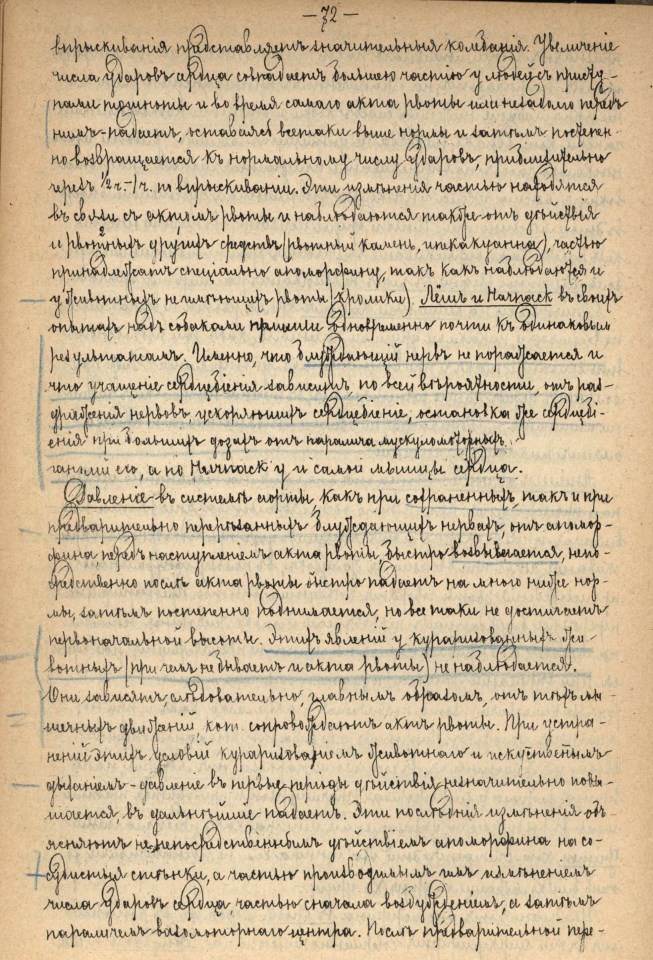 — 72 —
впрыскиванія представляетъ значительныя колебанія. Увеличеніе
числа ударовъ сердца совпадаетъ большею частію у людей съ присту-
пами тошноты и во время самаго акта рвоты или незадолго передъ
нимъ - падаетъ, оставаясь всетаки выше нормы и затѣмъ постепен-
но возвращается къ нормальному числу ударовъ, приблизительно
черезъ ½ ч. - 1 ч. по впрыскиваніи. Эти измѣненія частью находятся
въ связи съ актомъ рвоты и наблюдаются также отъ дѣйствія
и рвотныхъ другихъ средствъ (рвотный камень, ипекакуанна), частью
принадлежатъ спеціально апоморфину, такъ какъ наблюдаются и
у животныхъ не имѣющихъ рвоты (кролики) Лёшъ и Нагнаск въ своихъ
опытахъ надъ собаками пришли одновременно почти къ одинаковымъ
результатамъ. Именно, что блуждающій нервъ не поражается и
что учащеніе сердцебіенія зависитъ, по всей вѣроятности, отъ раз-
драженія нервовъ, ускоряющихъ сердцебіеніе, остановка же сердцебі-
енія при большихъ дозахъ отъ паралича мускуломоторныхъ
гангліи его, а по Нагнаск'у и самой мышцы сердца.
Давленіе въ системѣ аорты какъ при сохраненныхъ, такъ и при
предварительно перерѣзанныхъ блуждающихъ нервахъ, отъ апомор-
фина, передъ наступленіемъ акта рвоты, быстро возвышается, непо-
средственно послѣ акта рвоты быстро падаетъ на много ниже нор-
мы, затѣмъ постепенно поднимается, но все таки не достигаетъ
первоначальной высоты. Этихъ явленій у кураризованныхъ жи-
вотныхъ (при чемъ не бываетъ и акта рвоты) не наблюдается.
Они зависятъ, слѣдовательно, главнымъ образомъ, отъ тѣхъ мы-
шечныхъ движеній, кот. сопровождаютъ актъ рвоты. При устра-
неніи этихъ условій кураризованіемъ животнаго и искуственнымъ
дыханіемъ - давленіе въ первые періоды дѣйствія незначительно повы-
шается, въ дальнѣйшіе падаетъ. Эти послѣднія измѣненія объ-
ясняютъ непосредственнымъ дѣйствіемъ апоморфина на со-
судистыя стѣнки, а частью производимымъ имъ измѣненіемъ
числа ударовъ сердца, частью сначала возбужденіемъ, а затѣмъ
параличемъ вазомоторнаго центра. Послѣ предварительной пере-